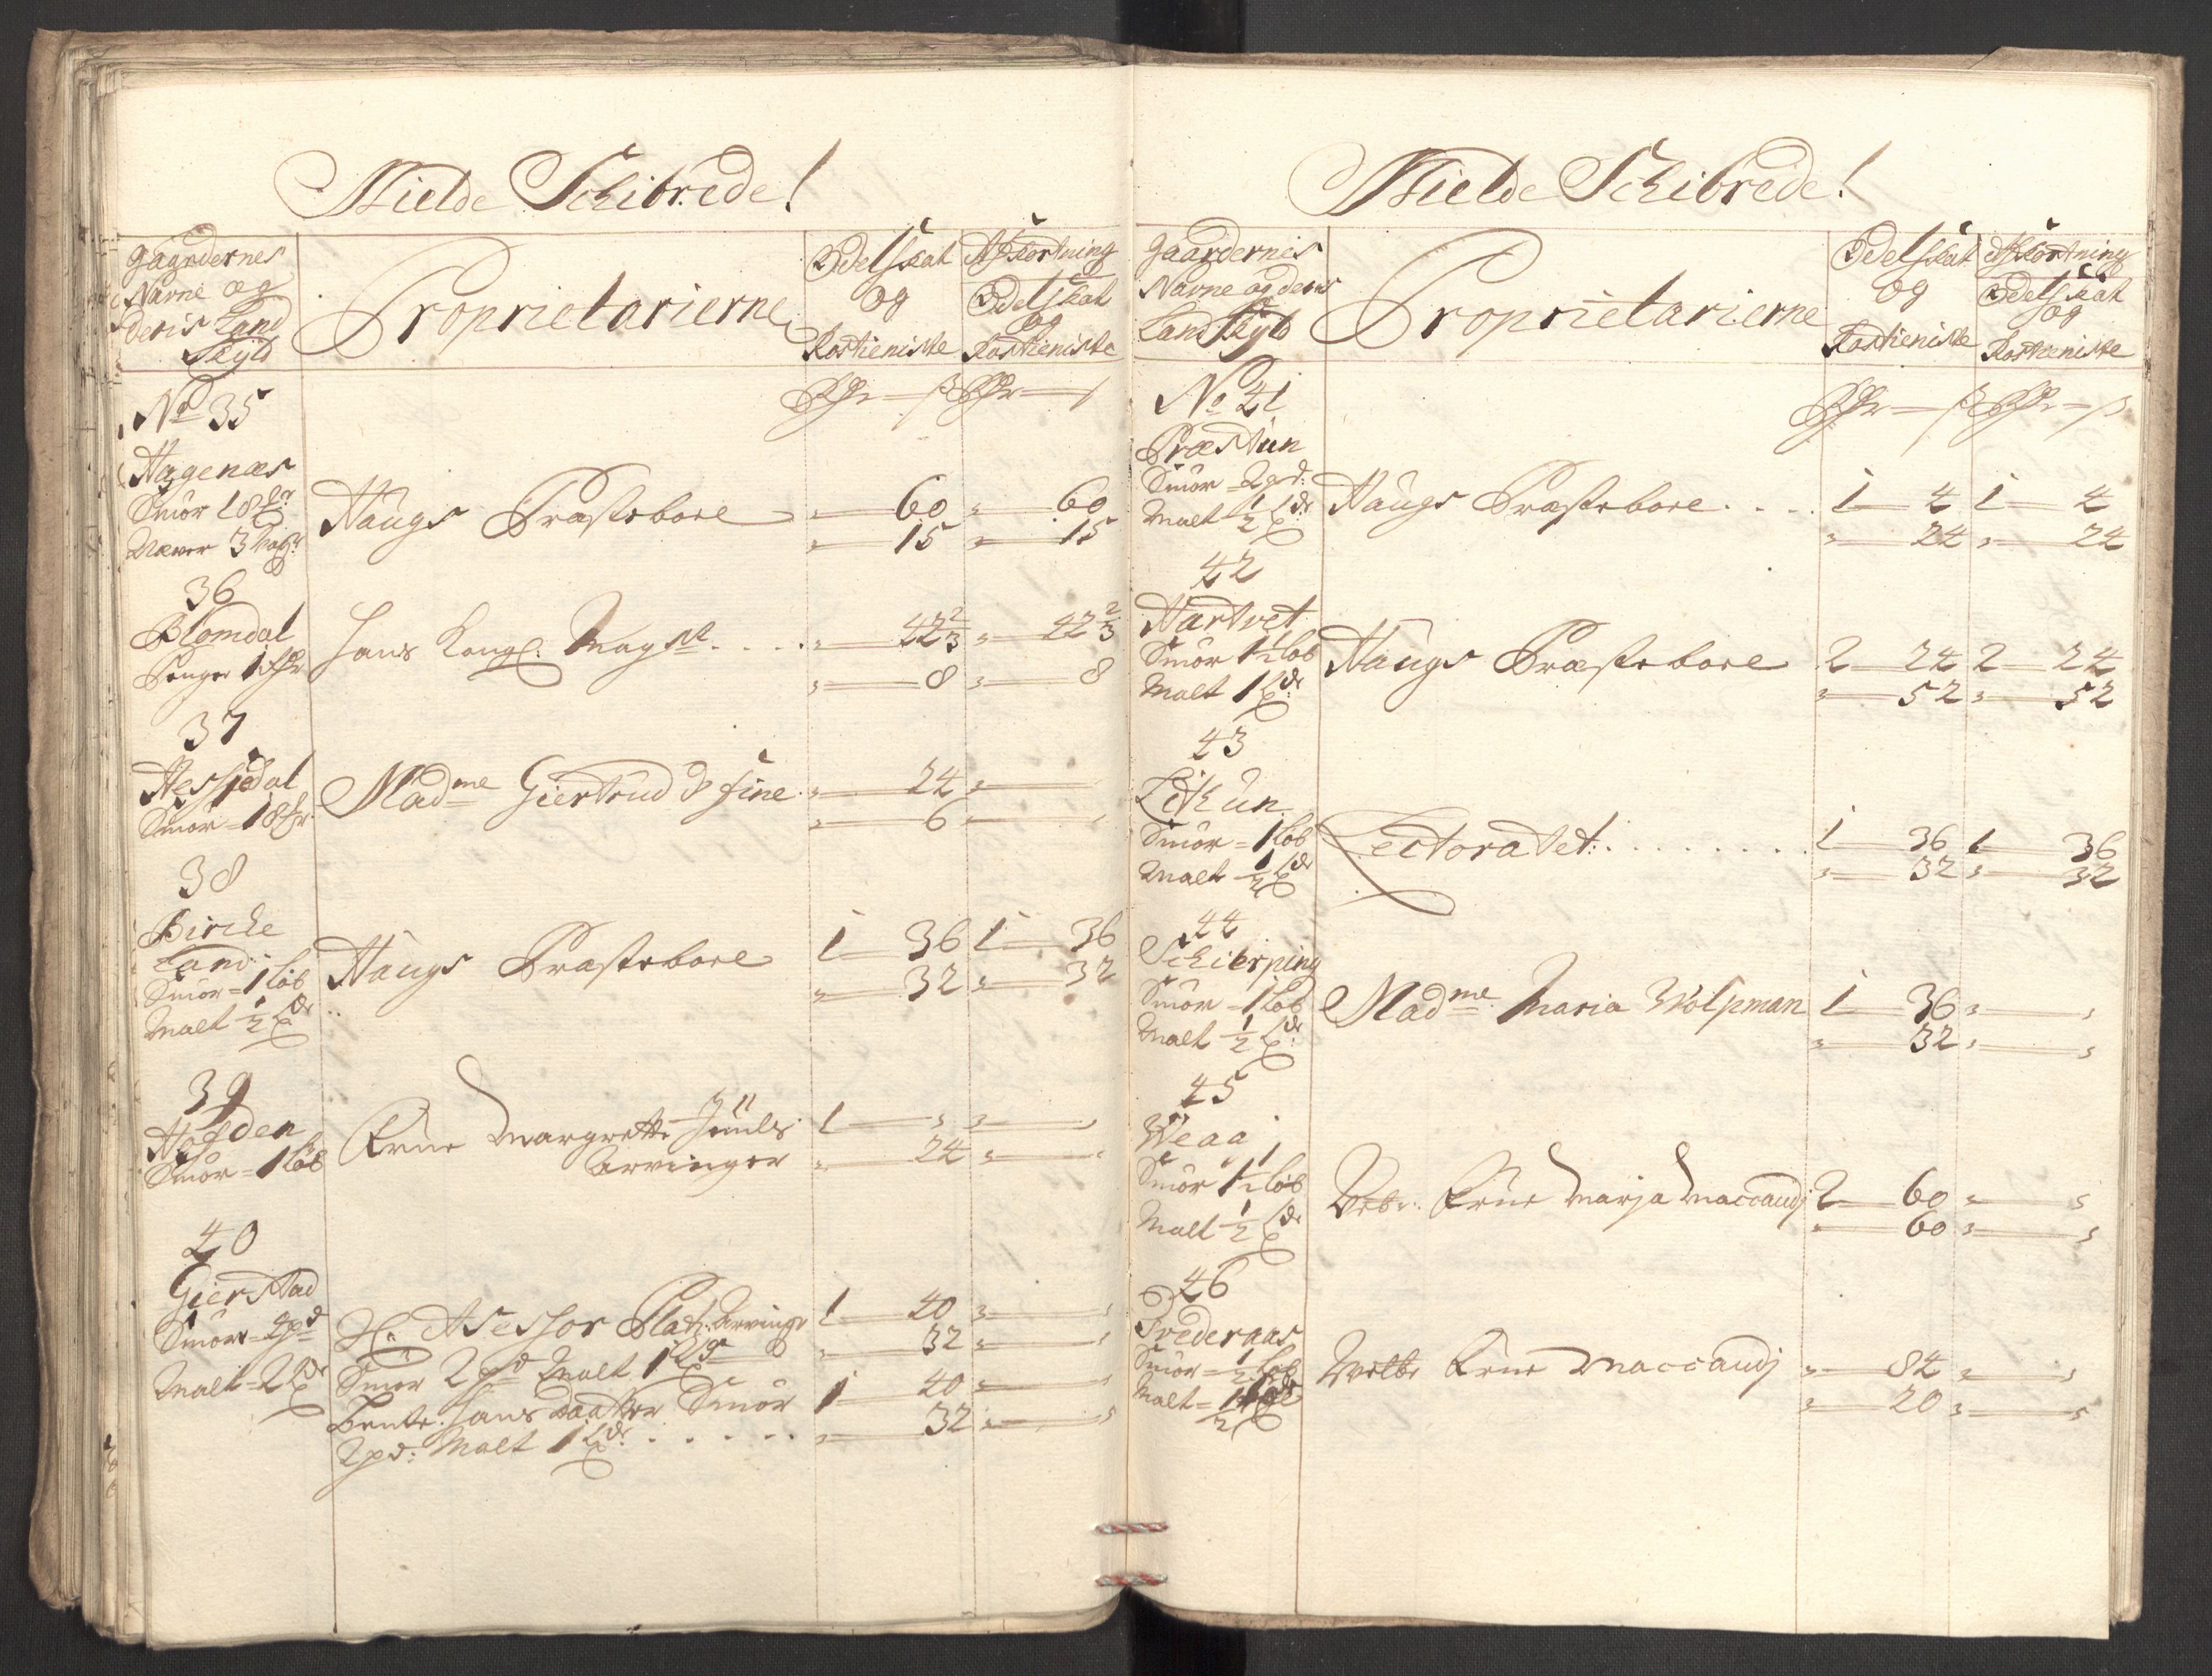 Mielde Schibrede!
Gaardernes
Navne og
deris Land
Skyld
Proprietarierne
Odelskat
og
Rostieniste
Afkortning
Odelskat
og
Rostieniste
Rdr — β Rdr — β
No 35
Hagenæs
Smør 18 
Næver 3 
Haugs Præstebole
" 60 " 60
" 15 " 15
36
Blomdal
Penger 1
Hans Kongl. Mayst. . . . " 42 2/3 " 42 2/3
" 8 " 8
37
Hessjedal
Smør = 18
Madme Giertrud d fine " 24 "
" 6
38
Birche
Land
Smør = 1 løb
Malt 1/2
Haugs Præstebole
1 36 1 36
" 32 " 32
39
Hofden
Smør = 1 løb
Frue Margrette Juuls
Arvinger
1 " " "
" 24 " "
40
Gierstad
Smør = 4pd
Malt = 2
Hr Asessor Arvinger 1 40 " "
Smør 2 pd Malt 1 " 32 " "
Bente Hans daatter Smør 1 40 " "
2 pd: Malt 1 . . . . . " 32 " "
Mielde Schibrede!
Gaardernis
Navne og deris
Landskyld
Proprietarierne
Odelskat
og
Rostieniste
Afkortning
Odelskat
og
Rostieniste
Rdr — β Rdr — β
No 41
Præstun
Smør = 2 pd:
Malt 1/2
Haugs Præstebole . . . . 1 4 1 4
" 24 " 24
42
Hartvet
Smør 1 1/2 løb
Malt 1
Haugs Præstebole 2 24 2 24
" 52 " 52
43
Litun
Smør = 1 løb
Malt 1/2
Lectoratet: . . . . . . . . 1 36 1 36
" 32 " 32
44
Schierping
Smør = 1 løb
Malt 1/2
Madme Maria Wolpman 1 36 " "
" 32 " "
45
Weaa
Smør 1 1/2 løb
Malt 1/2
Frue Marja Maccaudj 2 60 " "
" 60 " "
46
Trederaas
Smør = 1/2 løb
Malt = 1/2
Frue Maccaudj " 84 " "
" 20 " "